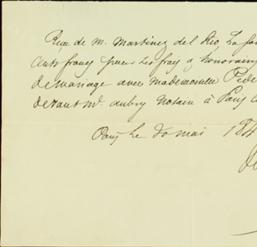 Reçu de M. Martinez del Rio, la so
Cents francs pour les frais & honoraires
de mariage avec Mademoiselle
devant Me Aubry Notaire à Paris
Paris Le 30 mai 184